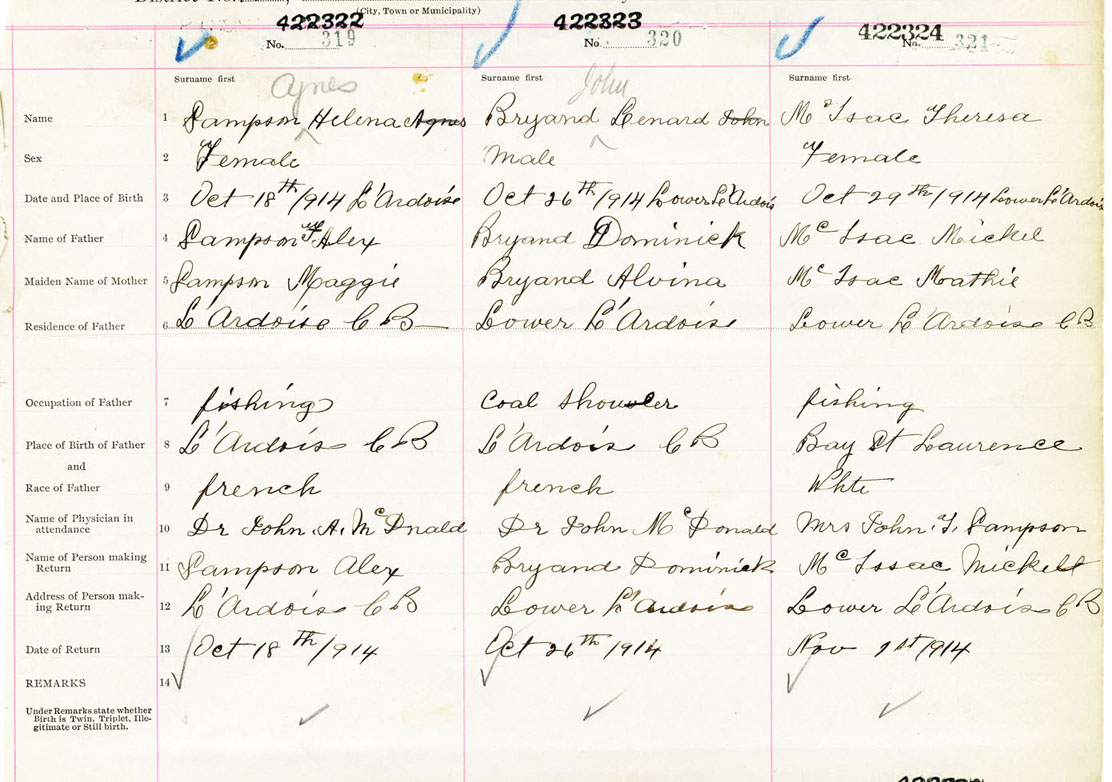 (City, Town or Municipality)
422322 422323 422324
No. 319 No. 320 No. 321
Surname first Surname first Surname first
Agnes John
Name 1 Sampson Helena Agnes Bryand Lenard John Mc Isac Theresa
Sex 2 Female Male Female
Date and Place of Birth 3 Oct 18th/1914 L'Ardoise Oct 26th/1914 Lower L'Ardois Oct 29th/1914 Lower L'Ardois
Name of Father 4 Sampson Alex Bryand Dominick Mc Isac Mickel
Maiden Name of Mother 5 Sampson Maggie Bryand Alvina Mc Isac Mathie
Residence of Father 6 L'Ardoise C B Lower L'Ardoise Lower L'Ardoise C B
Occupation of Father 7 fishing Coal fishing
Place of Birth of Father 8 L'Ardois C B L'Ardois C B Bay St Laurence
and
Race of Father 9 french french Whte
Name of Physician in
attendance 10 Dr John A. McDnald Dr John McDonald Mrs John Sampson
Name of Person making
Return 11 Sampson Alex Bryand Dominick Mc Issac Mickell
Address of Person mak-
ing Return 12 L'Ardois C B Lower L'Ardois Lower L'Ardois C B
Date of Return 13 Oct 18th/1914 Oct 26th/1914 Nov 1st/1914
REMARKS 14
Under Remarks state whether
Birth is Twin, Triplet, Ille-
gitimate or Still birth.